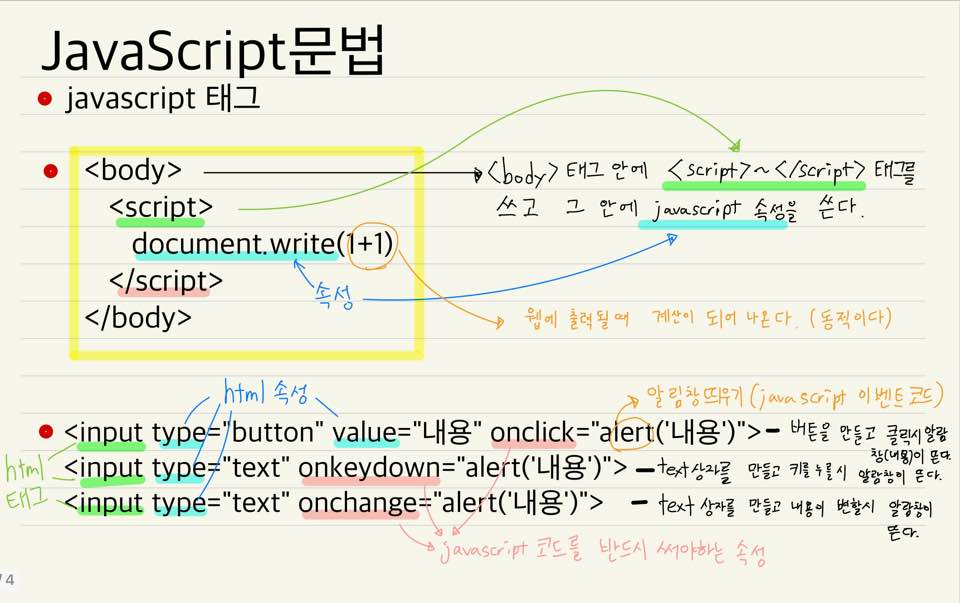 JavaScript문법
javascript 태그
<body>
<script>
document.write(1+1)
</script>
</body>
속성
<body> 태그 안에 <script>~</script> 태그를
쓰고 그 안에 javascript 속성을 쓴다.
웹에 출력될때 계산이 되어 나온다. (동적이다)
html 속성
알림창띄우기(javascript 이벤트코드)
<input type="button" value="내용" onclick="alert('내용')">
- 버튼을 만들고 클릭시 알람
창(내용)이 뜬다.
html
태그
<input type="text" onkeydown="alert('내용')">
- text상자를 만들고 키를 누를시 알람창이 뜬다.
<input type="text" onchange="alert('내용')">
- text 상자를 만들고 내용이 변할시 알람창이
뜬다.
javascript 코드를 반드시 써야하는 속성
/4